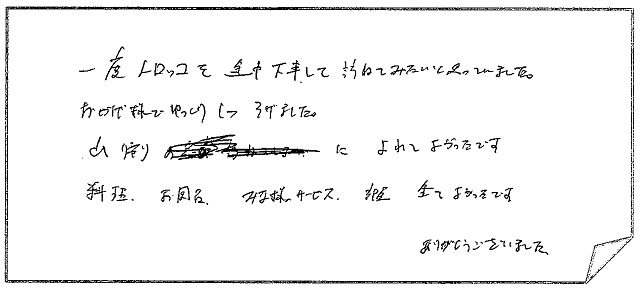 一度トロッコを途中下車して訪ねてみたいと思っていました。
おかげ様でゆっくりしつろげました。
山 に よれて よかったです
料理、お風呂、みな様のサービス、 全てよかったです
ありがとうございました